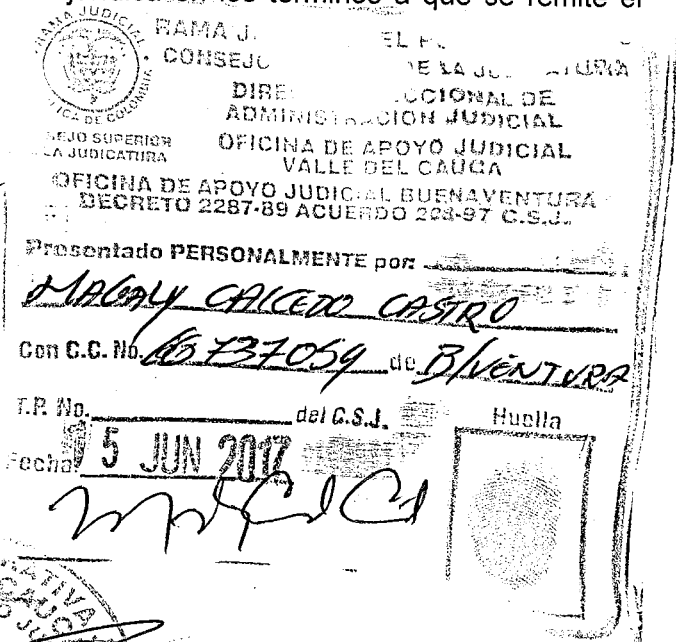 términos a que se remite el
RAMA JUDICIAL
RAMA J. EL P
CONSEJO DE LA JU ATURA
DIRE CCIONAL DE
ADMINISTRACION JUDICIAL
ICA DE COLOMBIA
SEJO SUPERIOR
LA JUDICATURA
OFICINA DE APOYO JUDICIAL
VALLE DEL CAUCA
OFICINA DE APOYO JUDICIAL BUENAVENTURA
DECRETO 2287-89 ACUERDO C.S.J.
Presentado PERSONALMENTE por:
MAGALY CAICEDO CASTRO
Con C.C. No. 66737059 de B/VENTURA
T.P. No. del C.S.J.
Huella
Fecha 5 JUN 2017